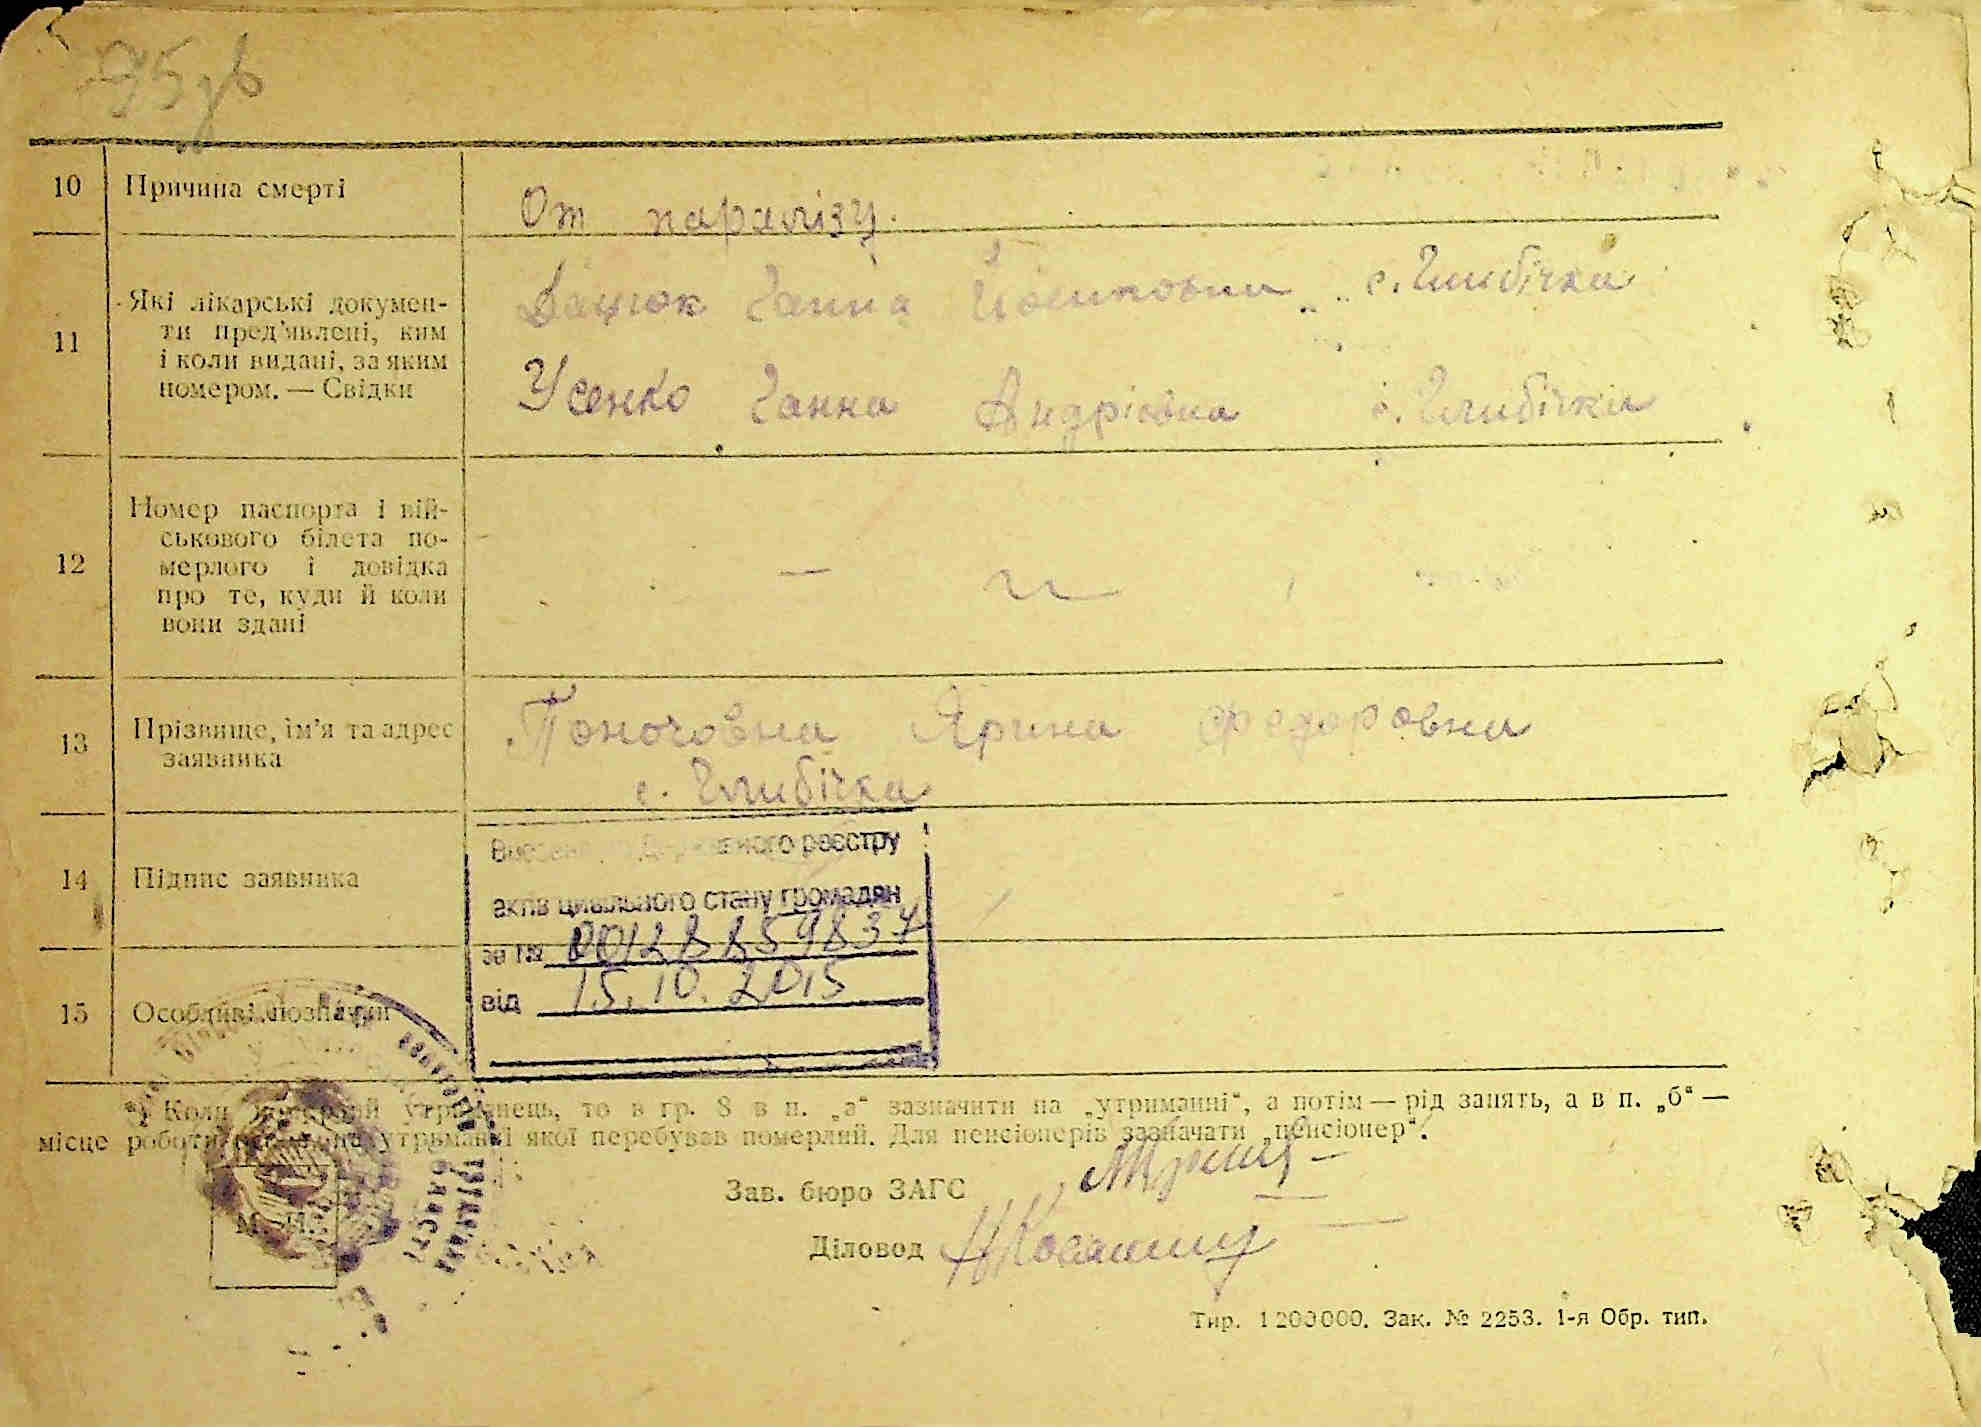 95 зв
10 Причина смерті
От паралізу.
11 Які лікарські докумен-
ти пред'явлені, ким
і коли видані, за яким
номером. — Свідки
Дацюк Ганна с. Глибічка
Усенко Ганна Андрієвна с. Глибічка
12 Номер паспорта і вій-
ськового білета по-
мерлого і довідка
про те, куди й коли
вони здані
—
13 Прізвище, ім'я та адрес
заявника
Ярина Федоровна
с. Глибічка
14 Підпис заявника
Державного реєстру
актів цивільного стану громадян
за № 00128859837
від 15.10.2015
15 Особливі познаки
*) Коли померлий утриманець, то в гр. 8 в п. „а“ зазначити на „утриманні“, а потім — рід занять, а в п. „б“ —
місце роботи утриманні якої перебував померлий. Для пенсіонерів зазначати „пенсіонер“.
Зав. бюро ЗАГС
М. П.
Діловод
Тир. 1200000. Зак. № 2253. 1-я Обр. тип.